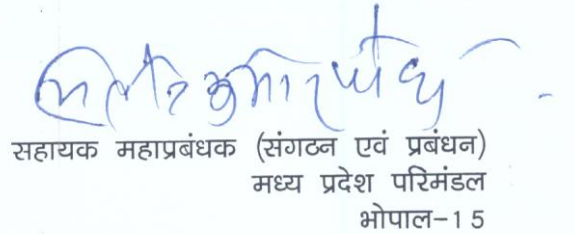 सहायक महाप्रबंधक (संगठन एवं प्रबंधन)
मध्य प्रदेश परिमंडल
भोपाल-15